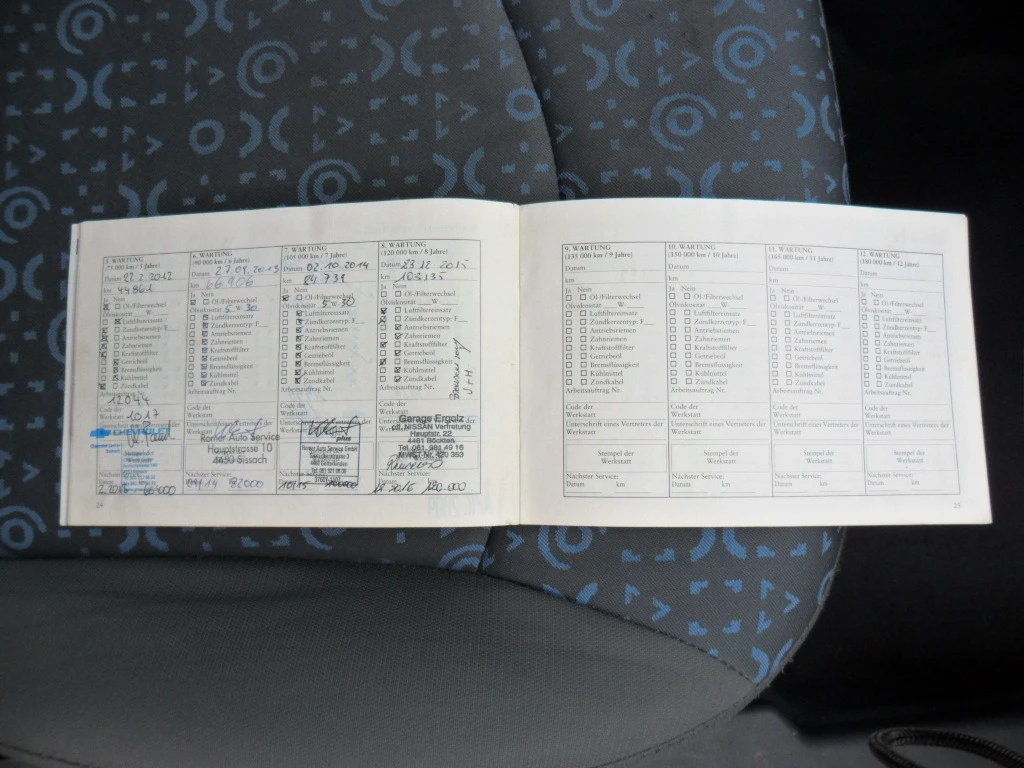 5. WARTUNG
(75 000 km / 5 Jahre)
Datum 22.2.2012
km 49861
Ja Nein
Öl-/Filterwechsel
Ölviskosität ___W___
Luftfiltereinsatz
Zündkerzentyp: F___
Antriebsriemen
Zahnriemen
Kraftstoffilter
Getriebeöl
Bremsflüssigkeit
Kühlmittel
Zündkabel
Arbeitsauftrag Nr.
12044
Code der
Werkstatt 1017
CHEVROLET
Stempel der
Werkstatt
Nächster Service:
Datum km
6. WARTUNG
(90 000 km / 6 Jahre)
Datum 27.09.2013
km 66906
Ja Nein
Öl-/Filterwechsel
Ölviskosität 5 W 30
Luftfiltereinsatz
Zündkerzentyp: F___
Antriebsriemen
Zahnriemen
Kraftstoffilter
Getriebeöl
Bremsflüssigkeit
Kühlmittel
Zündkabel
Arbeitsauftrag Nr.
Code der
Werkstatt
Unterschrift eines Vertreters der
Werkstatt
Romer Auto Service
Hauptstrasse 10
4450 Sissach
Nächster Service:
82000
7. WARTUNG
(105 000 km / 7 Jahre)
Datum 02.10.2014
km 84739
Ja Nein
Öl-/Filterwechsel
Ölviskosität 5 W 30
Luftfiltereinsatz
Zündkerzentyp: F___
Antriebsriemen
Zahnriemen
Kraftstoffilter
Getriebeöl
Bremsflüssigkeit
Kühlmittel
Zündkabel
Arbeitsauftrag Nr.
Code der
Werkstatt
Unterschrift eines Vertreters der
plus
Romer Auto Service GmbH
4460 Gelterkinden
Nächster Service:
10/15 100000
8. WARTUNG
(120 000 km / 8 Jahre)
Datum 23.12.2015
km 103135
Ja Nein
Öl-/Filterwechsel
Ölviskosität ___W___
Luftfiltereinsatz
Zündkerzentyp: F___
Antriebsriemen
Zahnriemen
Kraftstoffilter
Getriebeöl
Bremsflüssigkeit
Kühlmittel
Zündkabel
Arbeitsauftrag Nr.
Code der
Werkstatt
Garage Ergolz
off. NISSAN Vertretung
Hauptstr. 22
4461 Böckten
Tel. 061 981 49 16
MWST-Nr. 420 353
Nächster Service:
12.2016 120.000
24
9. WARTUNG
(135 000 km / 9 Jahre)
Datum
km
Ja Nein
Öl-/Filterwechsel
Ölviskosität ___W___
Luftfiltereinsatz
Zündkerzentyp: F___
Antriebsriemen
Zahnriemen
Kraftstoffilter
Getriebeöl
Bremsflüssigkeit
Kühlmittel
Zündkabel
Arbeitsauftrag Nr.
Code der
Werkstatt
Unterschrift eines Vertreters der
Werkstatt
Stempel der
Werkstatt
Nächster Service:
Datum km
10. WARTUNG
(150 000 km / 10 Jahre)
Datum
km
Ja Nein
Öl-/Filterwechsel
Ölviskosität ___W___
Luftfiltereinsatz
Zündkerzentyp: F___
Antriebsriemen
Zahnriemen
Kraftstoffilter
Getriebeöl
Bremsflüssigkeit
Kühlmittel
Zündkabel
Arbeitsauftrag Nr.
Code der
Werkstatt
Unterschrift eines Vertreters der
Werkstatt
Stempel der
Werkstatt
Nächster Service:
Datum km
11. WARTUNG
(165 000 km / 11 Jahre)
Datum
km
Ja Nein
Öl-/Filterwechsel
Ölviskosität ___W___
Luftfiltereinsatz
Zündkerzentyp: F___
Antriebsriemen
Zahnriemen
Kraftstoffilter
Getriebeöl
Bremsflüssigkeit
Kühlmittel
Zündkabel
Arbeitsauftrag Nr.
Code der
Werkstatt
Unterschrift eines Vertreters der
Werkstatt
Stempel der
Werkstatt
Nächster Service:
Datum km
12. WARTUNG
(180 000 km / 12 Jahre)
Datum
km
Ja Nein
Öl-/Filterwechsel
Ölviskosität ___W___
Luftfiltereinsatz
Zündkerzentyp: F___
Antriebsriemen
Zahnriemen
Kraftstoffilter
Getriebeöl
Bremsflüssigkeit
Kühlmittel
Zündkabel
Arbeitsauftrag Nr.
Code der
Werkstatt
Unterschrift eines Vertreters der
Werkstatt
Stempel der
Werkstatt
Nächster Service:
Datum km
25